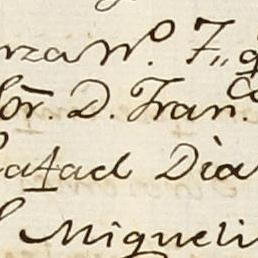 rza N.º 7,, g
or. D. Fran.co
afael Dia
l Migueli